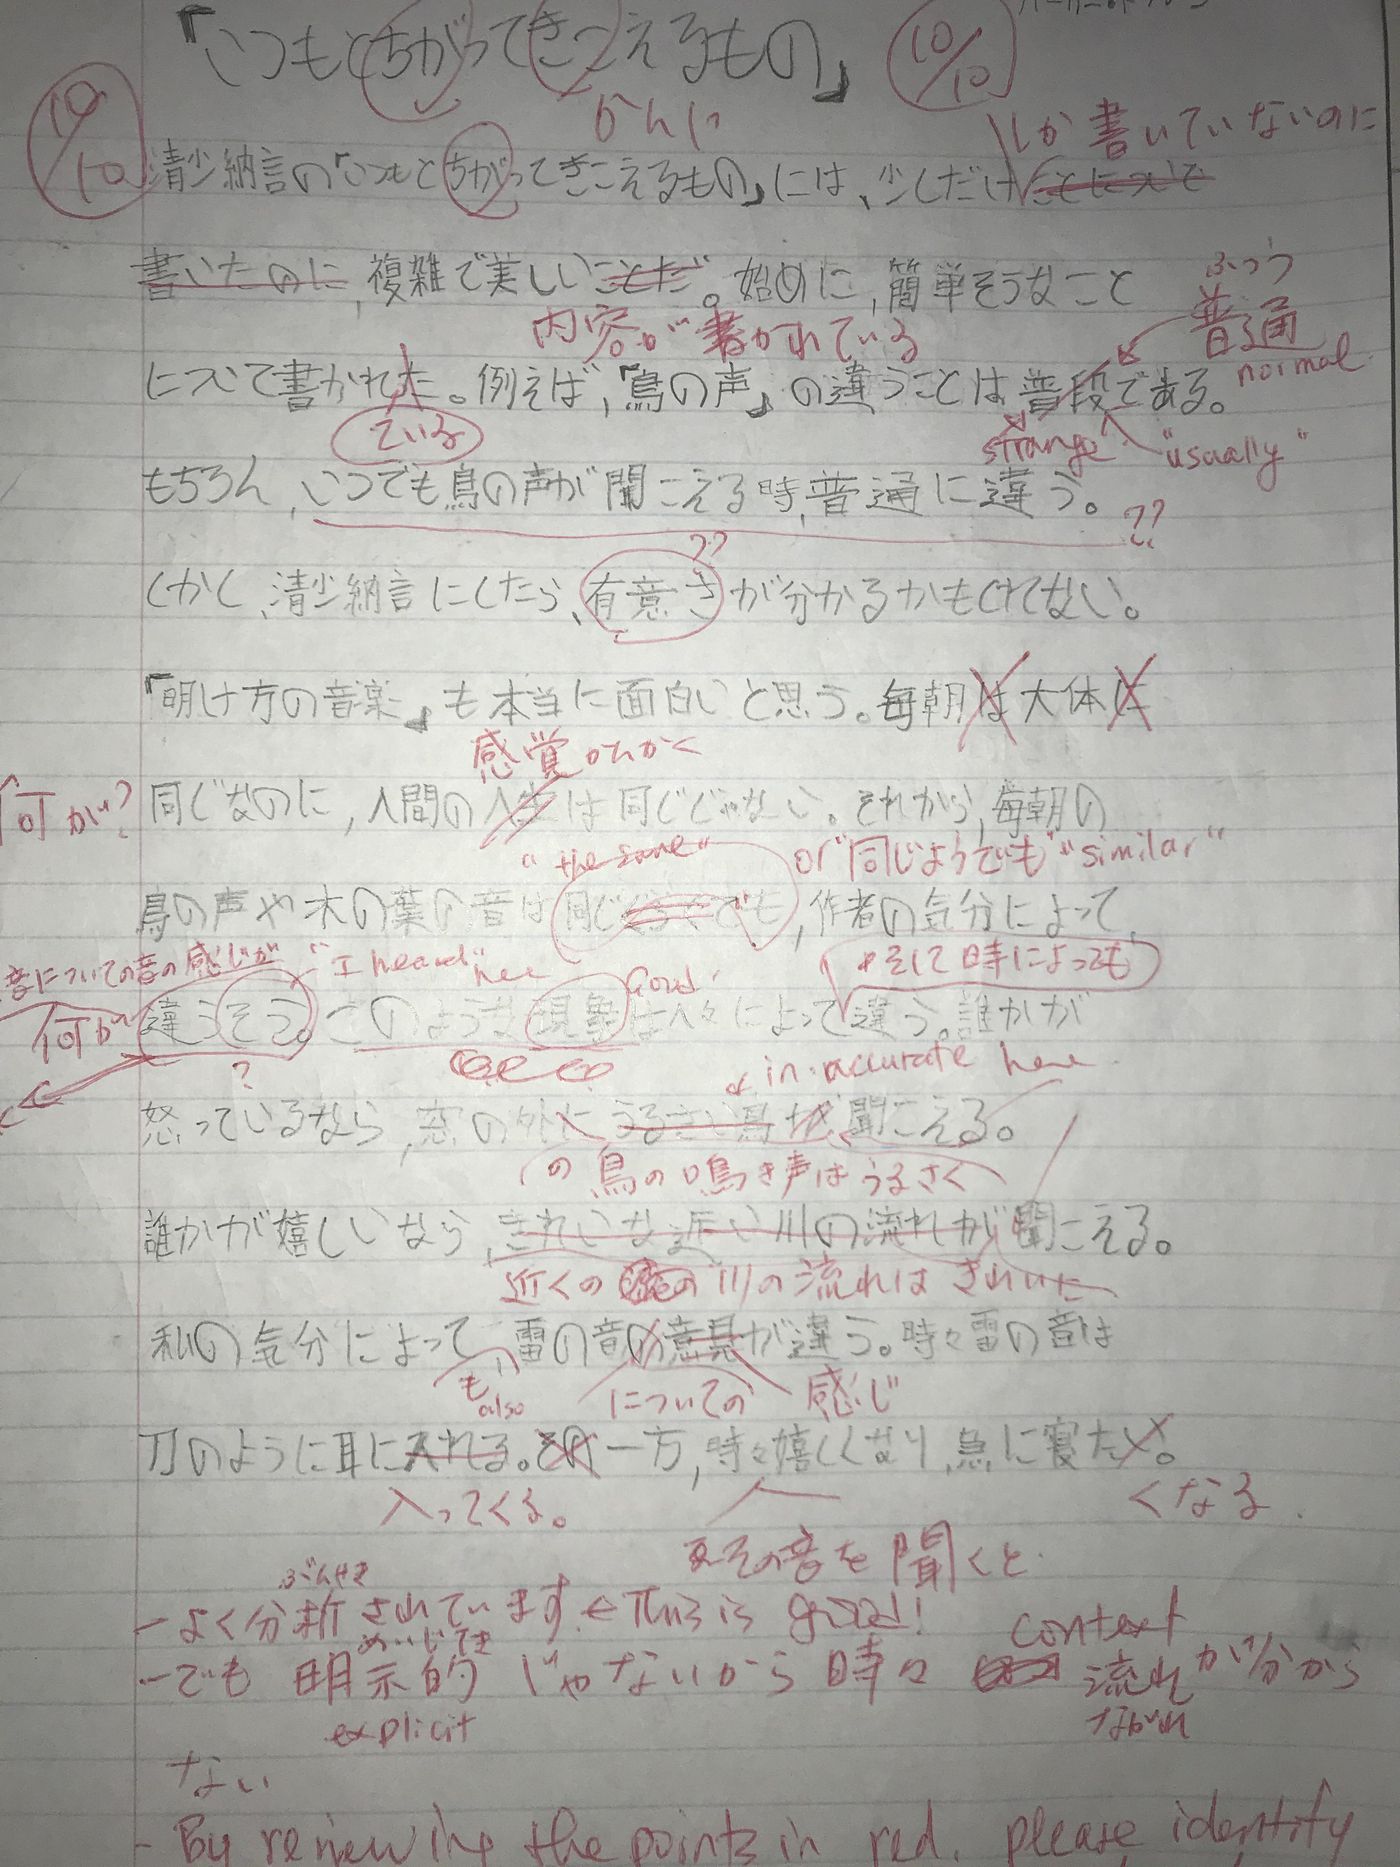 「いつもとちがってきこえるもの」
10/10
10/10
かんじ
しか書いていないのに
清少納言の「いつもとちがってきこえるもの」には、少しだけことについて
書いたのに、複雑で美しいことだ。始めに、簡単そうなこと
ふつう
普通
normal
内容が書かれている
について書かれた。例えば、「鳥の声」の違うことは普段である。
ている
strange
"usually"
もちろん、いつでも鳥の声が聞こえる時、普通に違う。
??
??
しかし、清少納言にしたら、有意さが分かるかもしれない。
「明け方の音楽」も本当に面白いと思う。毎朝は大体は
感覚 かんかく
何が?
同じなのに、人間の人生は同じじゃない。それから、毎朝の
"the same"
or "同じようでも" "similar"
鳥の声や木の葉の音は同じくらくでも、作者の気分によって、
そして時によっても
音についての音の感じが
"I heard" here
Good!
何が
違うそう。このような現象は人々によって違う。誰かが
?
inaccurate here
怒っているなら、窓の外にうるさい鳥が聞こえる。
の鳥の鳴き声はうるさく
誰かが嬉しいなら、きれいな近い川の流れが聞こえる。
近くの川の流れはきれいに
私の気分によって、雷の音の意見が違う。時々雷の音は
も
also
についての
感じ
刀のように耳に入れる。その一方、時々嬉しくなり、急に寝たい。
入ってくる。
くなる.
その音を聞くと
ぶんせき
-よく分析されています。←This is good!
めいじてき
context
-でも 明示的 じゃないから 時々 流れが分から
explicit
ながれ
ない
- By reviewing the points in red, please identify